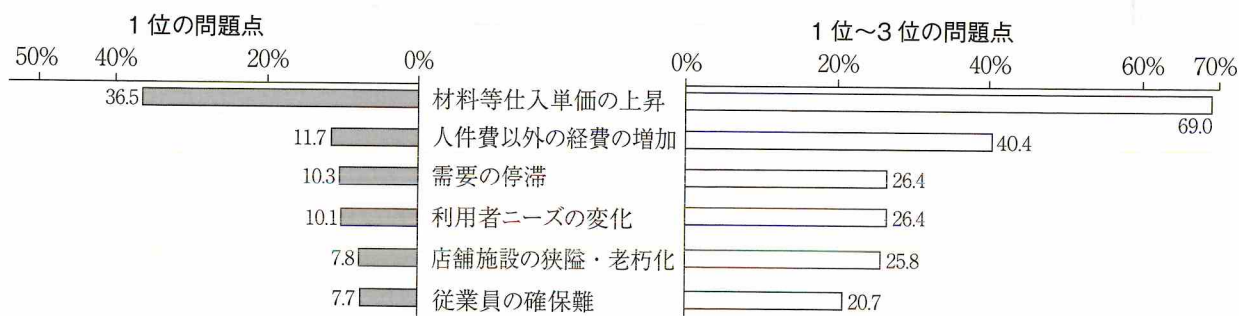 1位の問題点
1位～3位の問題点
50% 40% 20% 0%
0% 20% 40% 60% 70%
36.5 材料等仕入単価の上昇 69.0
11.7 人件費以外の経費の増加 40.4
10.3 需要の停滞 26.4
10.1 利用者ニーズの変化 26.4
7.8 店舗施設の狭隘・老朽化 25.8
7.7 従業員の確保難 20.7